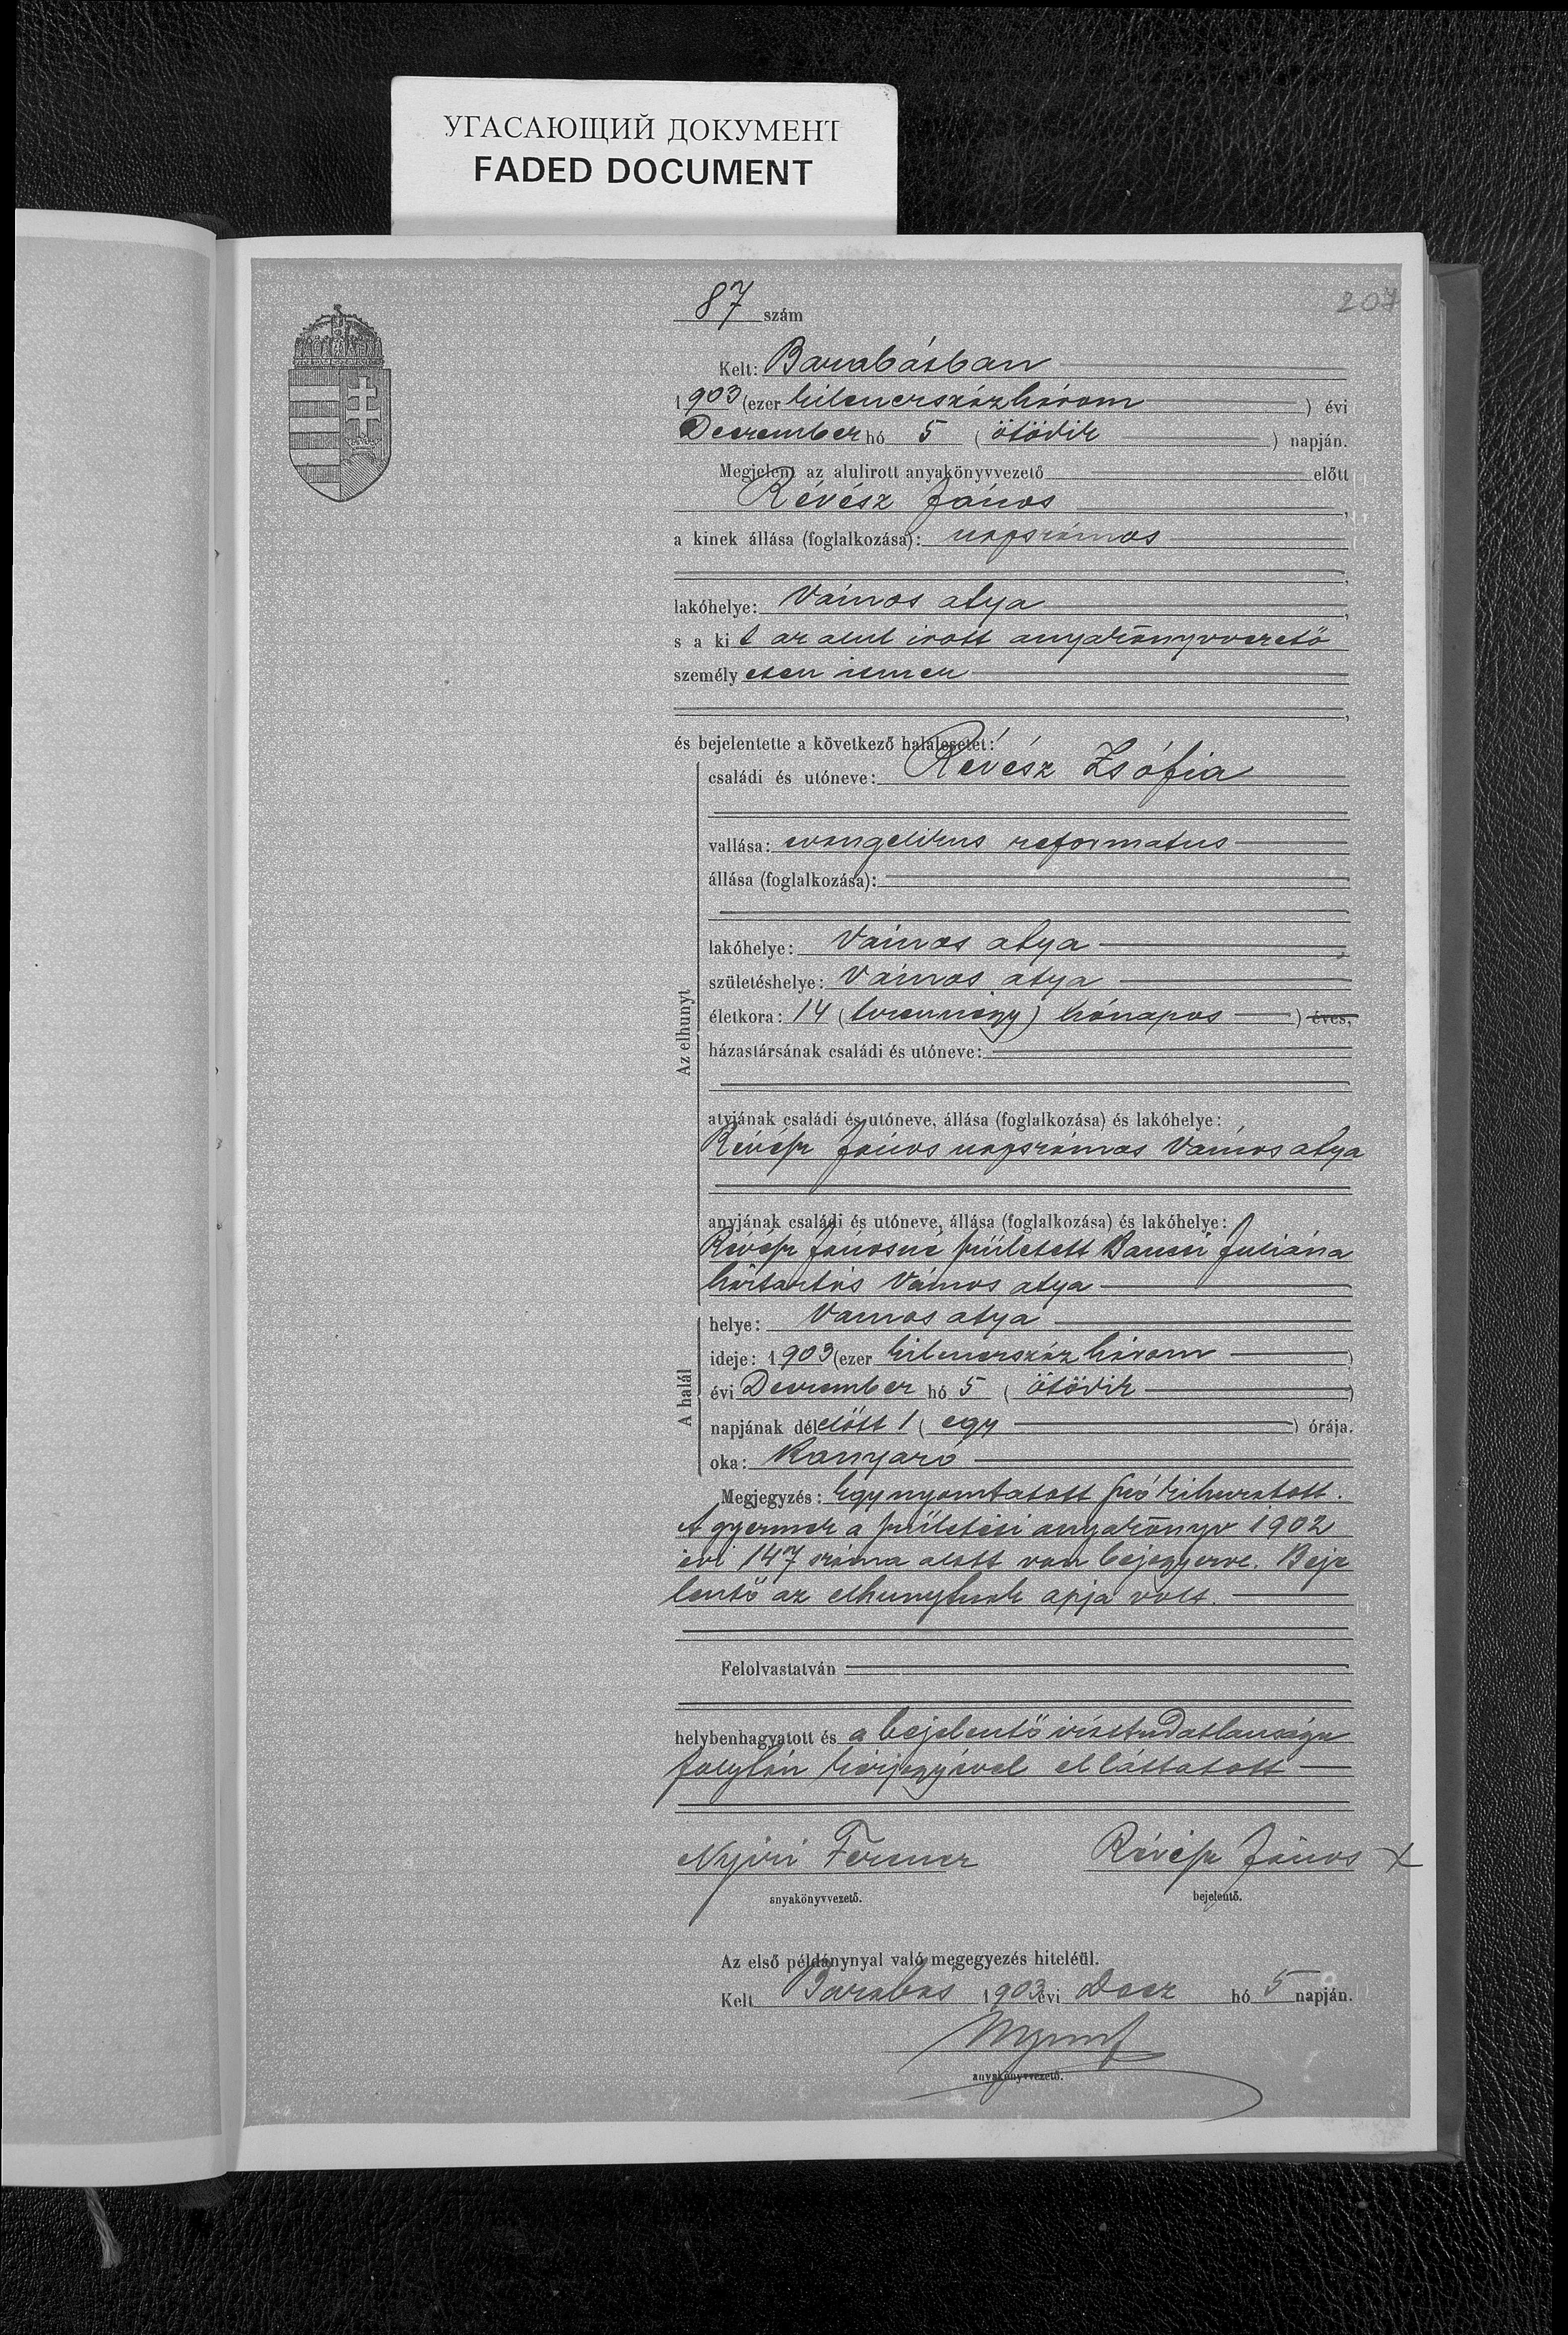 УГАСАЮЩИЙ ДОКУМЕНТ
FADED DOCUMENT
207
87 szám
Kelt: Barabásban
1903 (ezer kilenczszázhárom) évi
Deczember hó 5 (ötödik) napján.
Megjelent az alulirott anyakönyvvezető előtt
Révész János,
a kinek állása (foglalkozása): napszámos
lakóhelye: Vámos atya,
s a kit az alul irott anyakönyvvezető
személyesen ismer
és bejelentette a következő halálesetet:
Az elhunyt
családi és utóneve: Révész Zsófia
vallása: evangelikus reformatus
állása (foglalkozása):
lakóhelye: Vámos atya,
születéshelye: Vámos atya
életkora: 14 (tizennégy) hónapos) éves,
házastársának családi és utóneve:
atyjának családi és utóneve, állása (foglalkozása) és lakóhelye:
Révész János napszámos Vámos atya
anyjának családi és utóneve, állása (foglalkozása) és lakóhelye:
Révész Jánosné született Juliána
háztartás Vámos atya
A halál
helye: Vámos atya
ideje: 1903 (ezer kilenczszáz három)
évi Deczember hó 5 (ötödik)
napjának délelőtt 1 (egy) órája.
oka: Kanyaró
Megjegyzés: Egy nyomtatott szó kihuzatott.
A gyermek a születési anyakönyv 1902
évi 147 száma alatt van bejegyezve. Beje
lentő az elhunytnak apja volt.
Felolvastatván
helybenhagyatott és a bejelentő irástudatlansága
folytán kézjegyével elláttatott
Nyiri Ferencz Révész János X
anyakönyvvezető. bejelentő.
Az első példánynyal való megegyezés hiteléül.
Kelt Barabás 1903 évi Decz hó 5 napján.
anyakönyvvezető.